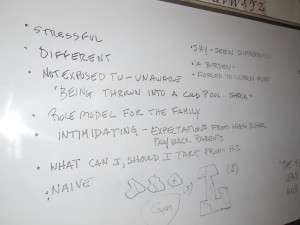 • STRESSFUL
• DIFFERENT
• NOT EXPOSED TO - UNAWARE
"BEING THROWN INTO A COLD POOL - SHOCK"
• ROLE MODEL FOR THE FAMILY
• INTIMIDATING - EXPECTATIONS FROM HIGH SCHOOL
PAYBACK PARENTS
• WHAT CAN I, SHOULD I TAKE FROM H.S.
• NAIVE
• SHY - SEEN DIFFERENTLY
• A BURDEN -
• FORCED TO LEARN MORE